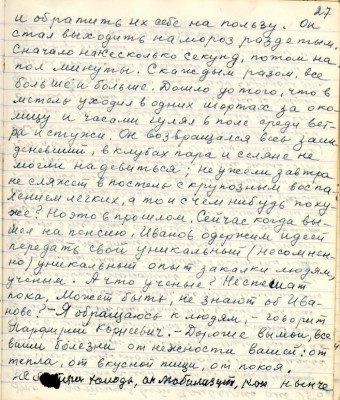 27
и обратить их себе на пользу. Он
стал выходить на мороз раздетым.
Сначало на несколько секунд, потом на
пол минуты. С каждым разом, все
больше и больше. Дошло до того, что в
метель уходил в одних шортах за око
лицу и часами гулял в поле среди вет-
ра и стужи. Он возвращался весь заин
девевший, в клубах пара и селяне не
могли надивиться; неужели завтра
не сляжет в постель с крупозным воспа-
лением легких, а то и с чем нибудь поху-
же? Но это в прошлом. Сейчас когда вы-
шел на пенсию, Иванов одержим идеей
передать свой уникальный (несомнен-
но) уникальный опыт закалки людям,
ученым. А что ученые? Не спешат
пока, может быть, не знают об Ива-
нове? - Я обращаюсь к людям, - говорит
Порфирий Корнеевич. - Дорогие вы мои, все
ваши болезни от нежности вашей: от
тепла, от вкусной пищи, от покоя.
холода, он мобилизует, нынче